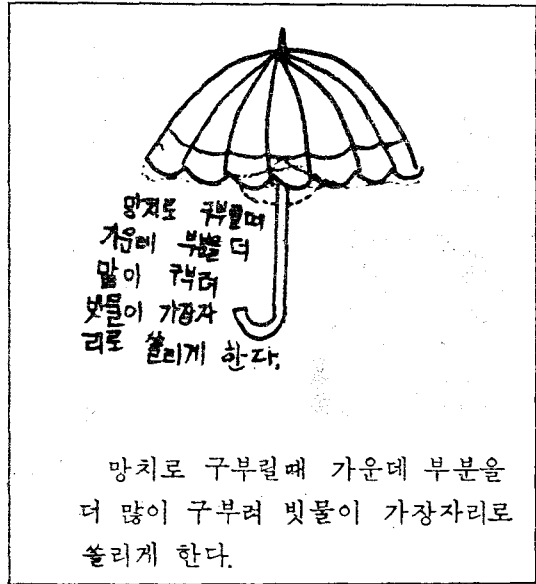 망치로 구부릴때
가운데 부분을 더
많이 구부려
빗물이 가장자
리로 쏠리게 한다.
망치로 구부릴때 가운데 부분을
더 많이 구부려 빗물이 가장자리로
쏠리게 한다.